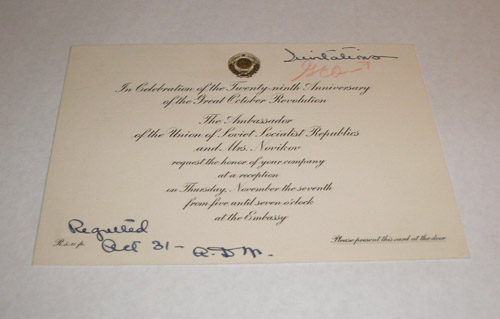 Invitations
In Celebration of the Twenty-ninth Anniversary
of the Great October Revolution
The Ambassador
of the Union of Soviet Socialist Republics
and Mrs. Novikov
request the honor of your company
at a reception
on Thursday, November the seventh
from five until seven o'clock
at the Embassy
Regretted
Oct 31-
R.s.v.p.
Please present this card at the door